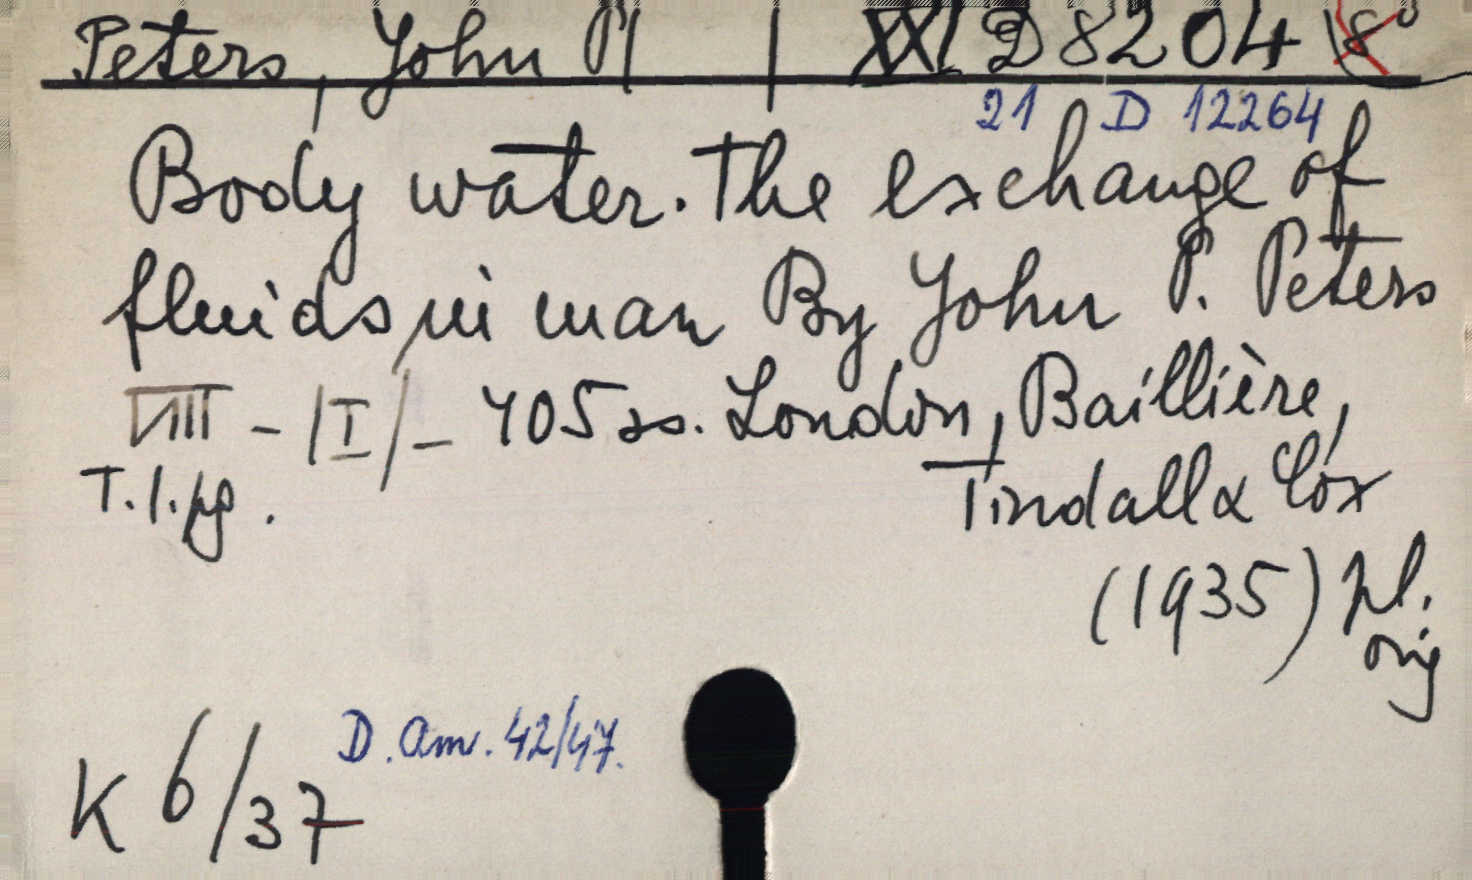 Peters, John P | XXI D 8204 8°
21 D 12264
Body water. The exchange of
fluids in man By John P. Peters
VIII - |I| - 405 ss. London, Baillière,
T. l. pg. Tindall & Cox
(1935) pł.
orig
D. Am. 42/47.
K 6/37